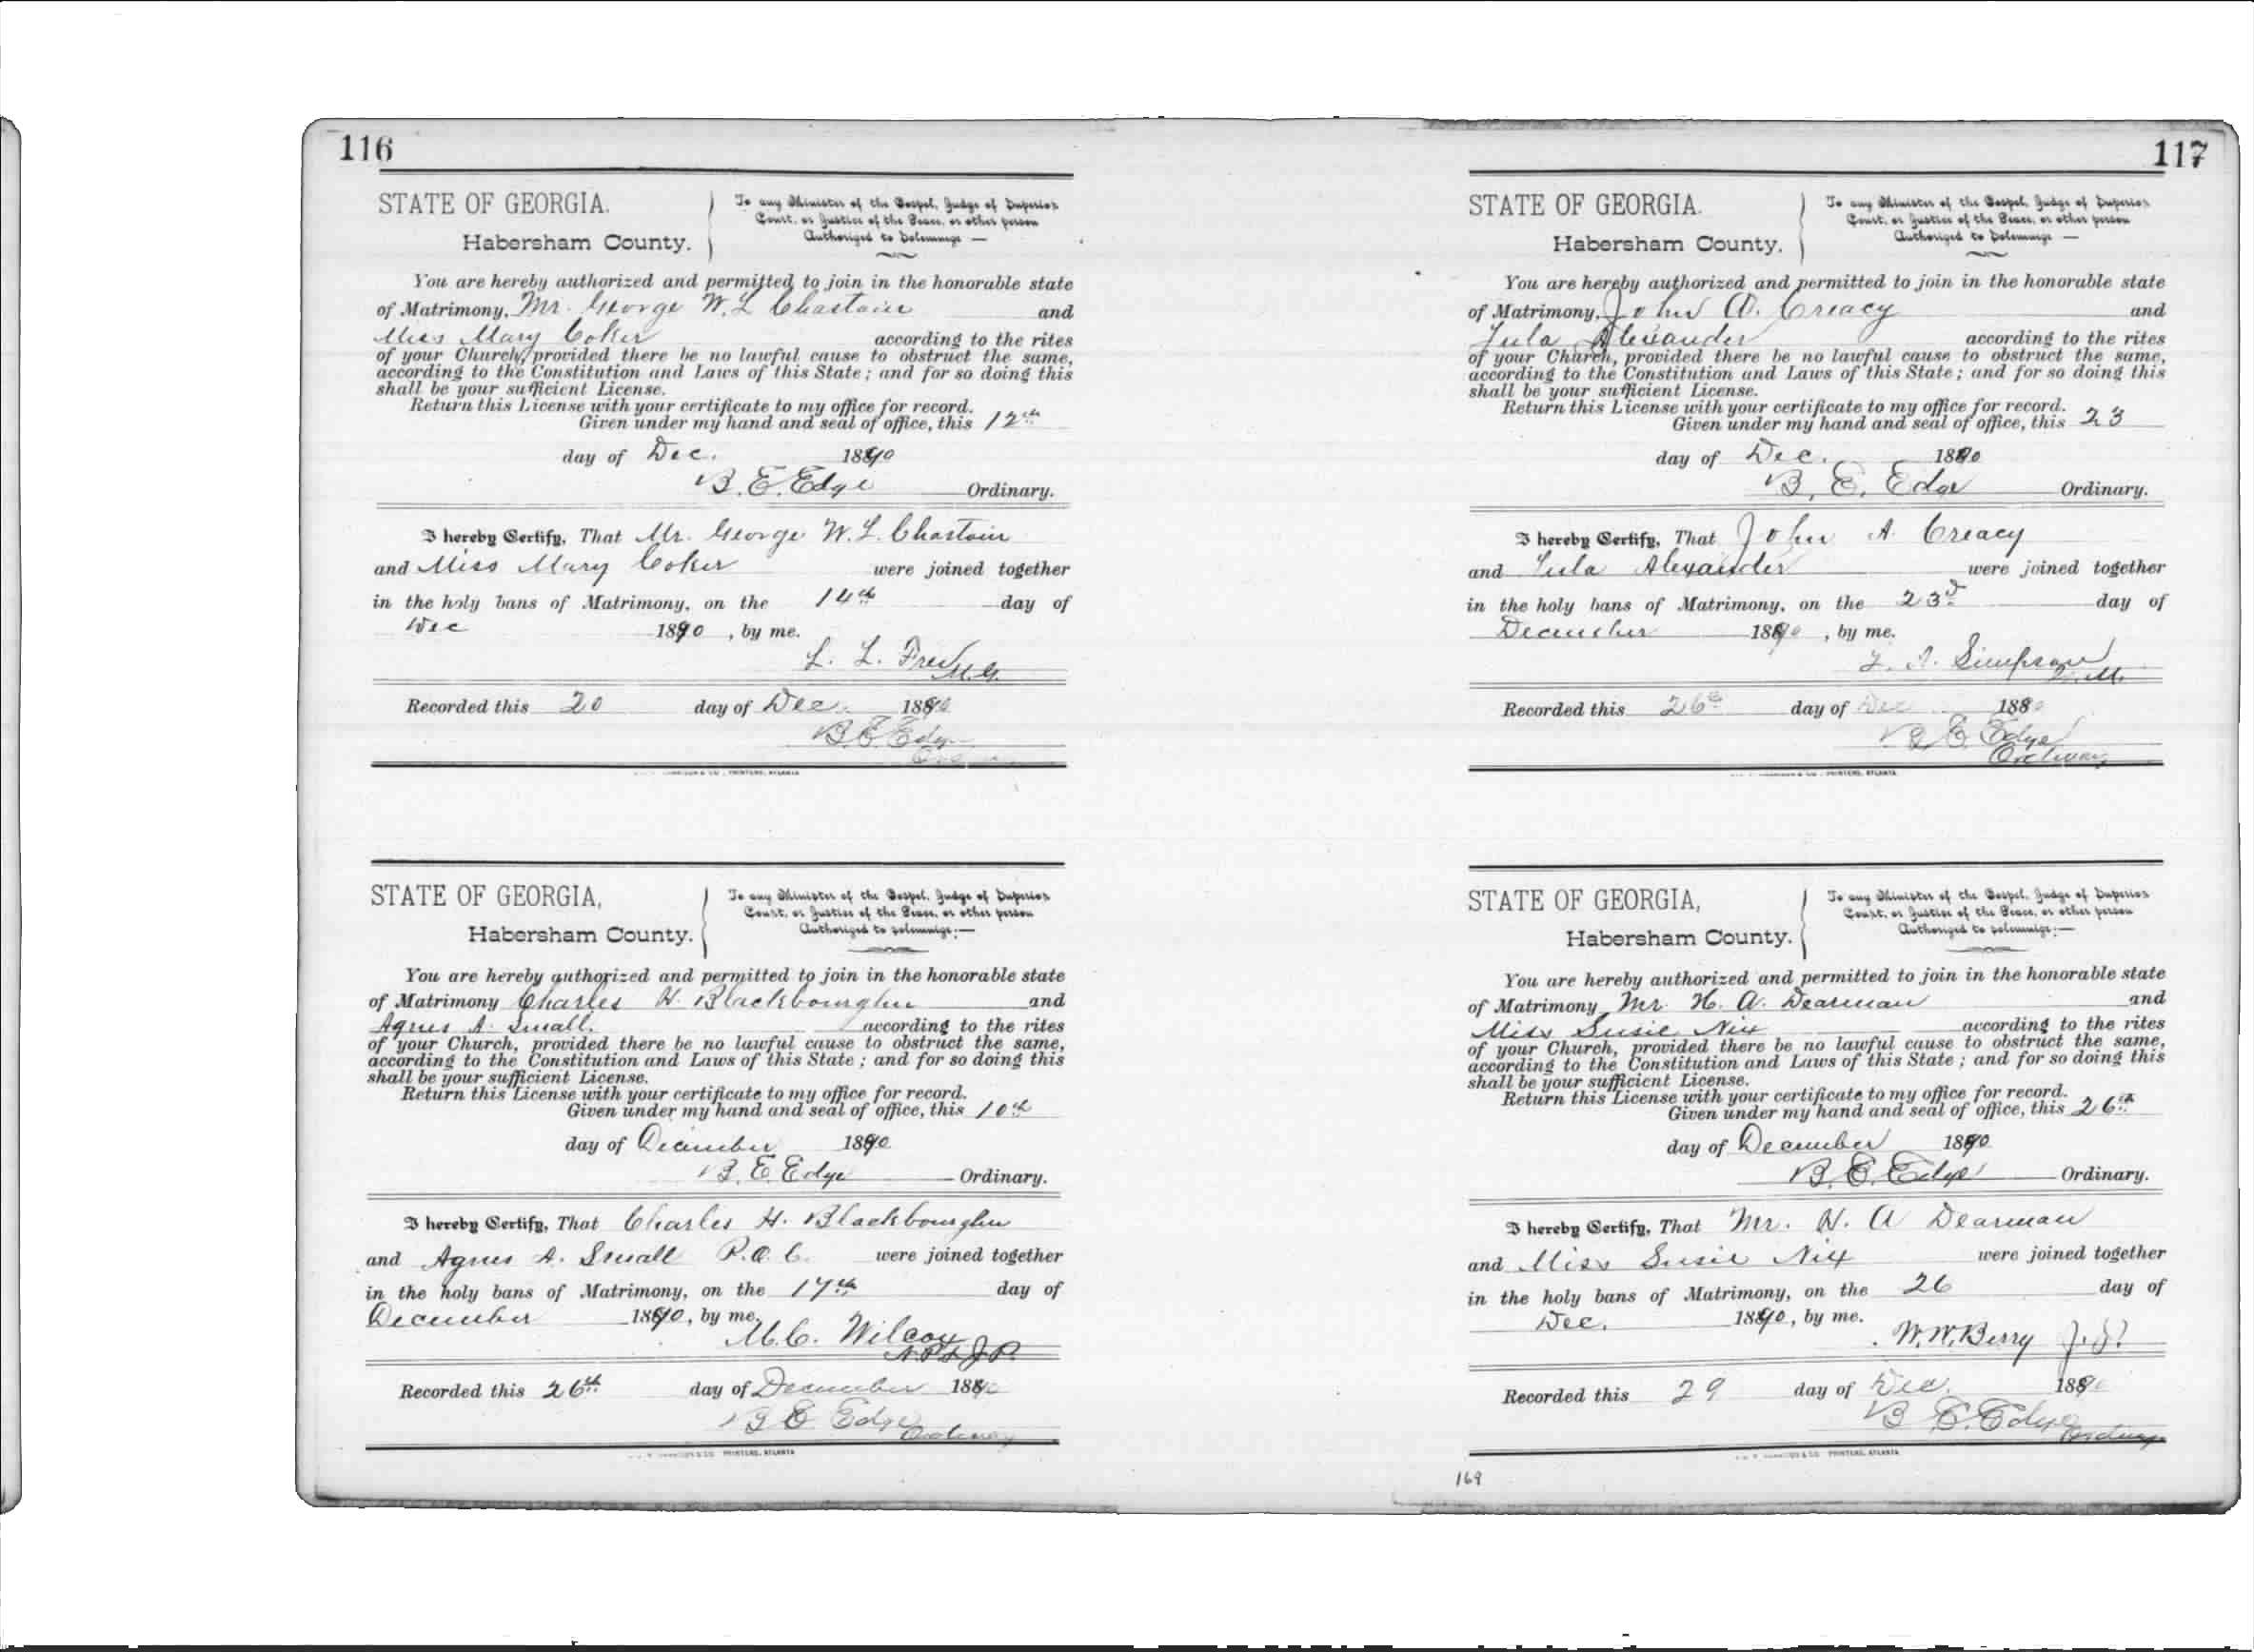 116
STATE OF GEORGIA.
Habersham County.
To any Minister of the Gospel, Judge of Superior
Court, or Justice of the Peace, or other person
Authorized to Solemnize —
You are hereby authorized and permitted to join in the honorable state
of Matrimony, Mr. George W. L Chastain and
Miss Mary Coker according to the rites
of your Church, provided there be no lawful cause to obstruct the same,
according to the Constitution and Laws of this State; and for so doing this
shall be your sufficient License.
Return this License with your certificate to my office for record.
Given under my hand and seal of office, this 12th
day of Dec. 1890
B. E. Edge Ordinary.
I hereby Certify, That Mr. George W. L. Chastain
and Miss Mary Coker were joined together
in the holy bans of Matrimony, on the 14th day of
Dec 1890, by me.
L. L. M.G.
Recorded this 20 day of Dec. 1890
B. E. Edge
STATE OF GEORGIA,
Habersham County.
To any Minister of the Gospel, Judge of Superior
Court, or Justice of the Peace, or other person
Authorized to solemnize:—
You are hereby authorized and permitted to join in the honorable state
of Matrimony Charles H. Blackbourghn and
Agnes A. Small. according to the rites
of your Church, provided there be no lawful cause to obstruct the same,
according to the Constitution and Laws of this State; and for so doing this
shall be your sufficient License.
Return this License with your certificate to my office for record.
Given under my hand and seal of office, this 10th
day of December 1890
B. E. Edge Ordinary.
I hereby Certify, That Charles H. Blackbourghn
and Agnes A. Small P.O.C. were joined together
in the holy bans of Matrimony, on the 17th day of
December 1890, by me.
M. C. Wilcox
N.P. & J.P.
Recorded this 26th day of December 1890
B E Edge
Ordinary
PRINTERS, ATLANTA
117
STATE OF GEORGIA.
Habersham County.
To any Minister of the Gospel, Judge of Superior
Court, or Justice of the Peace, or other person
Authorized to Solemnize —
You are hereby authorized and permitted to join in the honorable state
of Matrimony, John A. Creacy and
Lula Alexander according to the rites
of your Church, provided there be no lawful cause to obstruct the same,
according to the Constitution and Laws of this State; and for so doing this
shall be your sufficient License.
Return this License with your certificate to my office for record.
Given under my hand and seal of office, this 23
day of Dec. 1890
B. E. Edge Ordinary.
I hereby Certify, That John A. Creacy
and Lula Alexander were joined together
in the holy bans of Matrimony, on the 23d day of
December 1890, by me.
Simpson
Recorded this 26th day of Dec 188
B E Edge
Ordinary
PRINTERS, ATLANTA
STATE OF GEORGIA,
Habersham County.
To any Minister of the Gospel, Judge of Superior
Court, or Justice of the Peace, or other person
Authorized to solemnize:—
You are hereby authorized and permitted to join in the honorable state
of Matrimony Mr. H. A. Dearman and
Miss Susie Nix according to the rites
of your Church, provided there be no lawful cause to obstruct the same,
according to the Constitution and Laws of this State; and for so doing this
shall be your sufficient License.
Return this License with your certificate to my office for record.
Given under my hand and seal of office, this 26th
day of December 1890
B. E. Edge Ordinary.
I hereby Certify, That Mr. H. A Dearman
and Miss Susie Nix were joined together
in the holy bans of Matrimony, on the 26 day of
Dec. 1890, by me.
W. W. Berry
Recorded this 29 day of Dec. 1890
B E. Edge
Ordinary
PRINTERS, ATLANTA
169